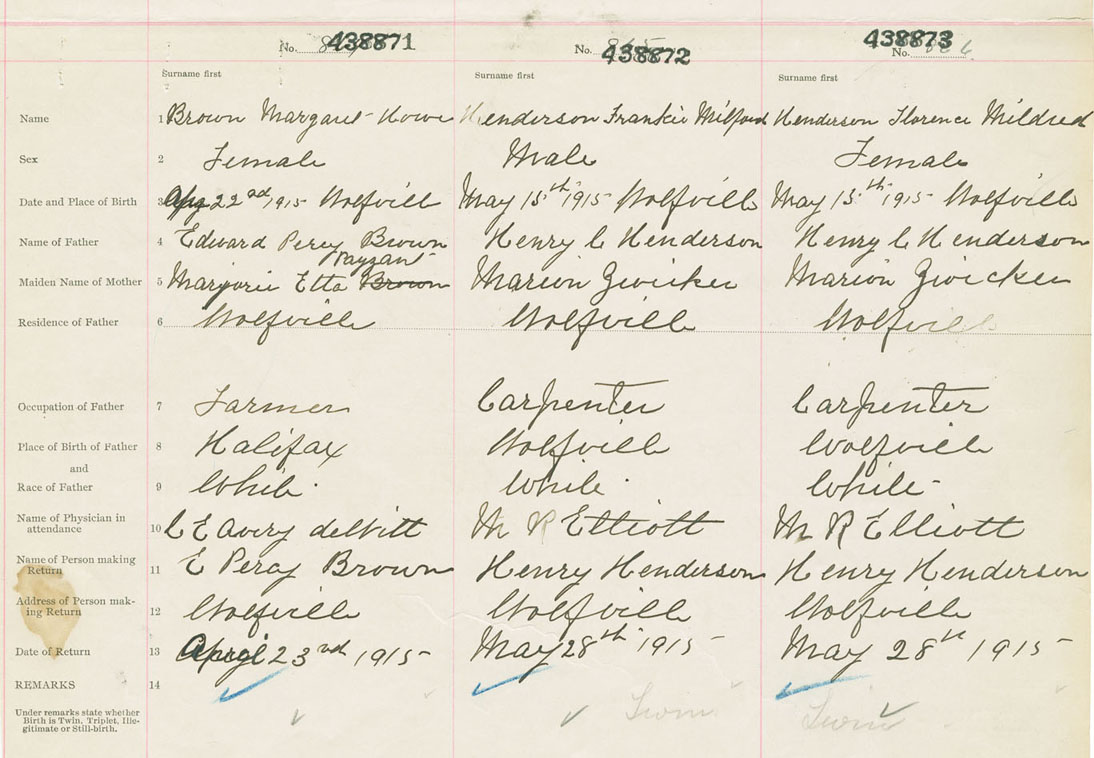 No. 438871 No. 438872 438873 No.
Surname first Surname first Surname first
Name 1 Brown Margaret Howe Henderson Frankie Milford Henderson Florence Mildred
Sex 2 Female Male Female
Date and Place of Birth 3 22nd 1915 Wolfville May 15th 1915 Wolfville May 15th 1915 Wolfville
Name of Father 4 Edward Percy Brown Henry C Henderson Henry C Henderson
Tayzant
Maiden Name of Mother 5 Marjorie Etta Brown Marion Zwicker Marion Zwicker
Residence of Father 6 Wolfville Wolfville Wolfville
Occupation of Father 7 Farmer Carpenter Carpenter
Place of Birth of Father 8 Halifax Wolfville Wolfville
and
Race of Father 9 White White White
Name of Physician in
attendance 10 C E Avery deWitt M R Elliott M R Elliott
Name of Person making
Return 11 E Percy Brown Henry Henderson Henry Henderson
Address of Person mak-
ing Return 12 Wolfville Wolfville Wolfville
Date of Return 13 April 23rd 1915 May 28th 1915 May 28th 1915
REMARKS 14
Under remarks state whether
Birth is Twin, Triplet, Ille-
gitimate or Still-birth.
Twin Twin